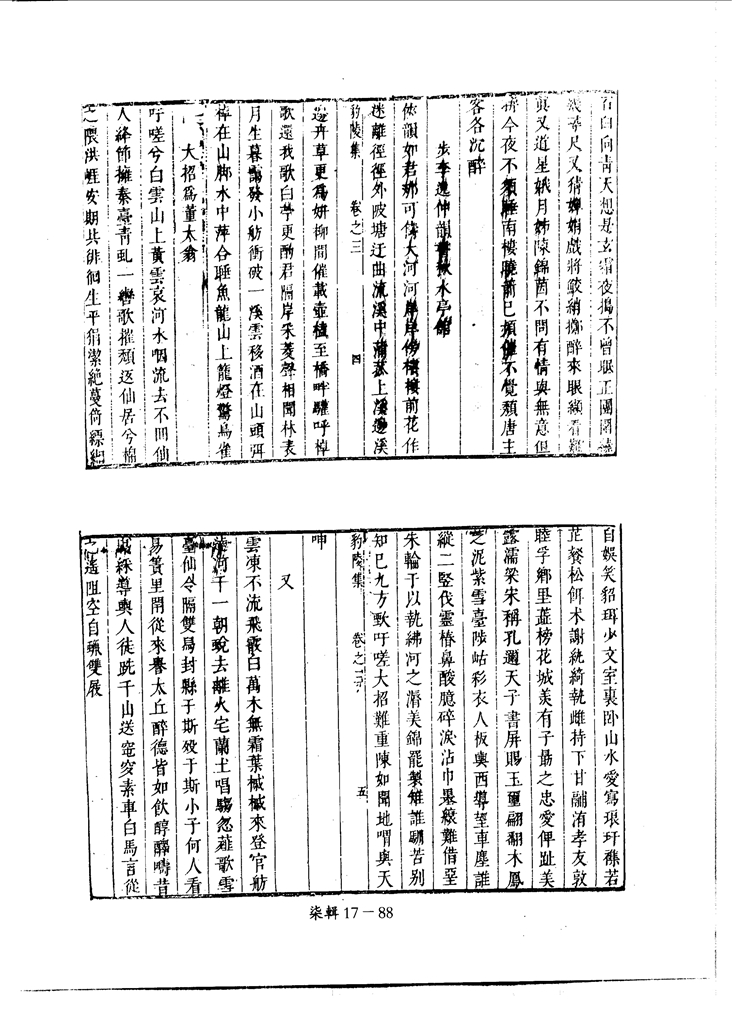 石白向青天想是玄霜夜搗不曾眠正團圞遠
幾尋尺又猜嬋娟戲將鮫綃擲醉來眼纈看難
真又道是娥月姊陳錦茵不問有情與無意但
拚今夜不須睡南樓曉前已頻催不覺頹唐主
客各沉醉
步李遺仲韻水亭館
依韻如君那可倚大河河岸岸傍樓樓前花作
迷離徑徑外陂塘迂曲流溪中蒲荻上溪邊溪
豹陵集 卷之三 四
邊卉草更爲妍柳間催載壺榼至橋畔驩呼棹
歌還我歌白苧更酌君隔岸采菱聲相聞林表
月生暮靄發小舫衝破一溪雲移酒在山頭弭
棹在山脚水中萍合睡魚龍山上籠燈驚鳥雀
大招爲董太翁
吁嗟兮白雲山上黃雲哀河水咽流去不回仙
人絳節擁秦臺青虬一轡歌摧頹返仙居兮棉
之隈洪崕安期共徘徊生平狷潔絶蔓倚縹緗
自娛笑貂珥少文室裏卧山水愛寫琅玕蓀若
芷餐松餌术謝紈綺執雌持下甘瀡滫孝友敦
睦孚鄉里蘂榜花城美有子勗之忠愛俾趾美
露濡梁宋稱孔邇天子書屏賜玉璽翩翻木鳳
芝泥紫雪臺陟岵彩衣人板輿西導望車塵誰
縱二竪伐靈椿鼻酸臆碎淚沾巾墨縗難借堊
朱輪于以執紼河之漘美錦罷製雉誰馴苦别
知已九方歅吁嗟大招難重陳如聞地喟與天
呻
豹陵集 卷之三 五
又
雲凍不流飛霰白萬木無霜葉槭槭來登官舫
河干一朝蛻去離火宅蘭土唱騶忽薤歌雪
臺仙令隔雙舄封縣于斯歿于斯小子何人看
易簀里閈從來譽太丘醉德皆如飲醇醪疇昔
綵導輿人徒跣千山送窀穸素車白馬言從
之遙阻空自蠟雙屐
柒輯17－88